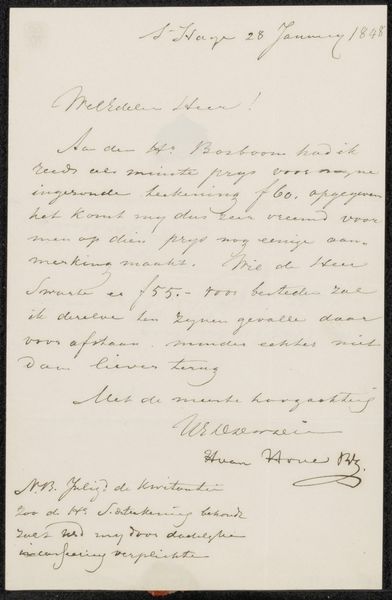 s'Hage 28 January 1848
WelEdele Heer!
Aan den Hr. Bosboom had ik
reeds als minste prys voor myne
ingezonde teekening f60. opgegeven
het komt my dus zeer vreemd voor
men op dien prys nog eenige aan-
merking maakt. Wil de Heer
Swarts er f55.- voor besteden zal
ik dezelve ten zynen gevalle daar
voor afstaan minder echter niet
dan liever terug
Met de meeste hoogachting
UEd
H van Hove Bz.
N.B. de kwitantie
zoo de Hr. S. de teekening behoudt
my door dadelyke
verplichte